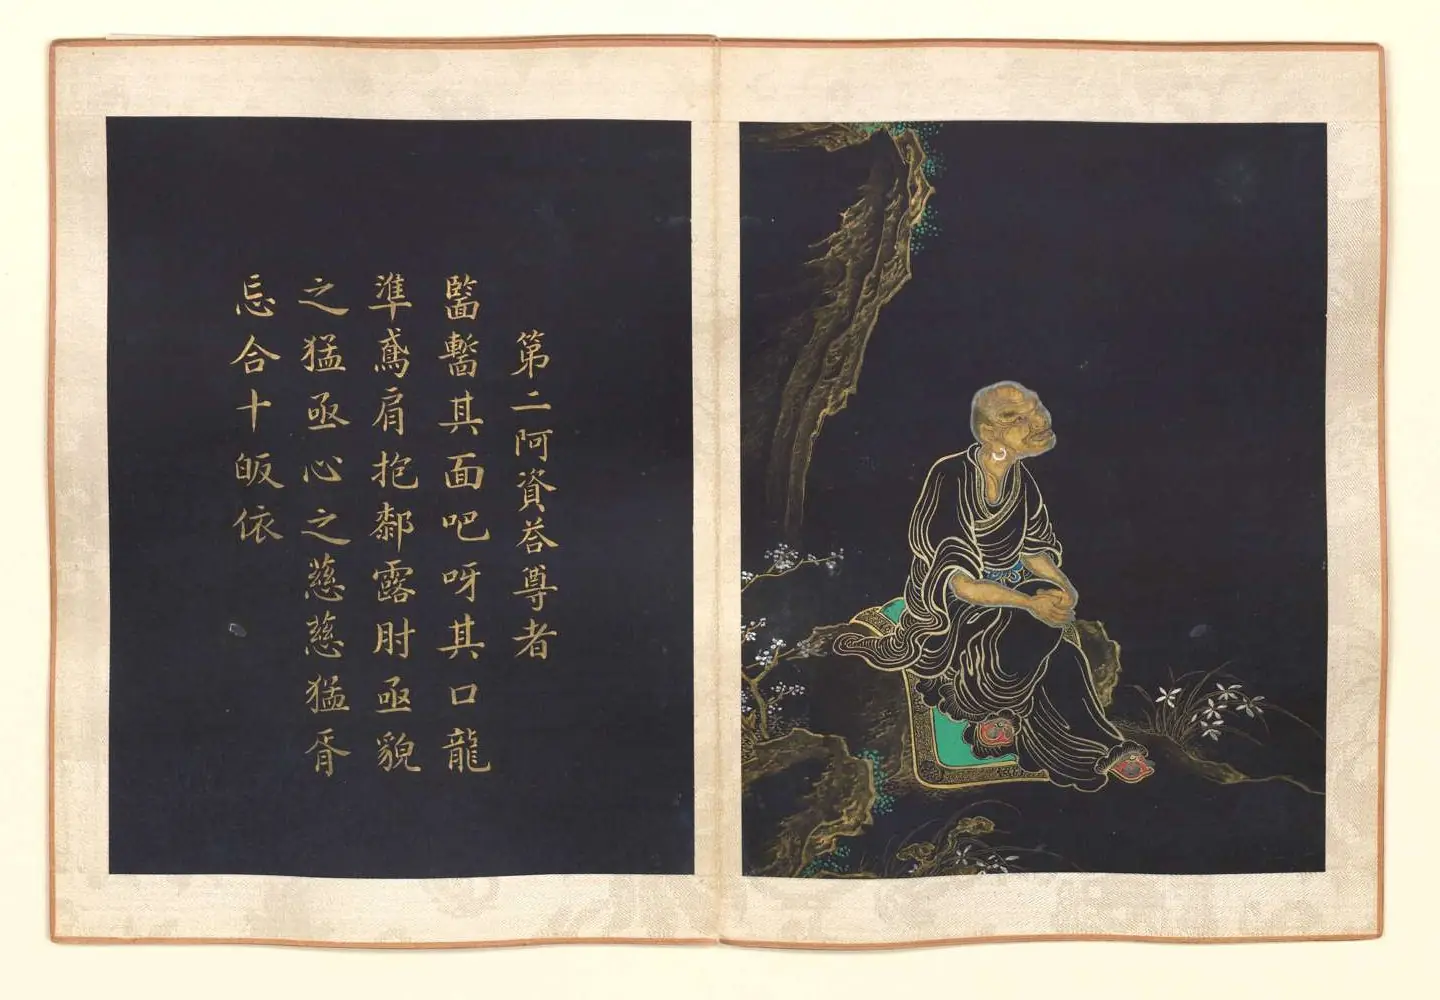 第二阿資荅尊者
其面吧呀其口龍
準鳶肩抱厀露肘亟貌
之猛亟心之慈慈猛胥
忘合十皈依